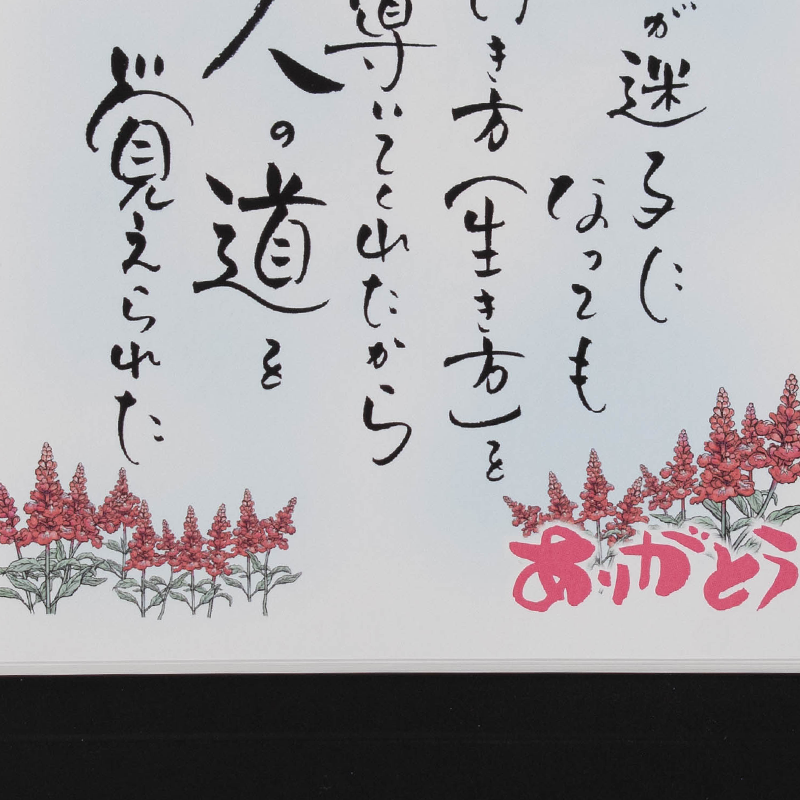 が迷子に
なっても
き方(生き方)を
導いてくれたから
人の道を
覚えられた
ありがとう